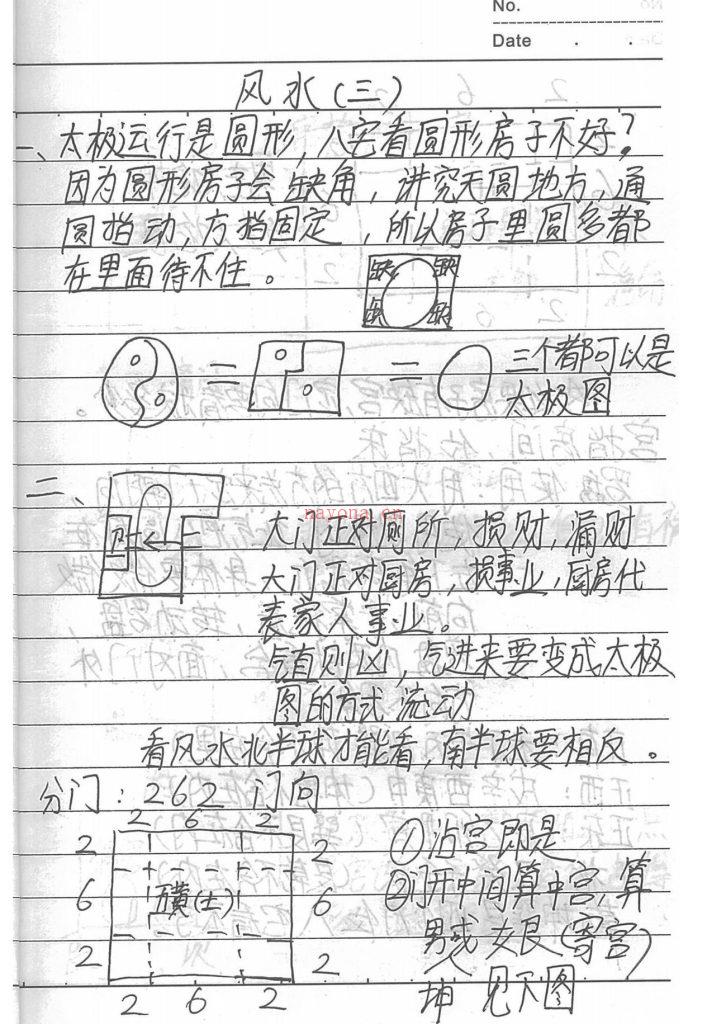 No.
Date . .
风水(三)
一、太极运行是圆形,八宅看圆形房子不好?
因为圆形房子会缺角,讲究天圆地方,通
圆指动,方指固定,所以房子里圆多都
在里面待不住。
缺 缺
缺 缺
= = 三个都可以是
太极图
二、
nayona.cn
大门正对厕所,损财,漏财
大门正对厨房,损事业,厨房代
表家人事业。
气直则凶,气进来要变成太极
图的方式流动
看风水北半球才能看,南半球要相反。
分门:262门向
2 6 2
2 2 ①沾宫即是
6 五黄(土) 6 ②门开中间算中宫,算
2 2 男 女艮(寄宫)
2 6 2 坤 见下图